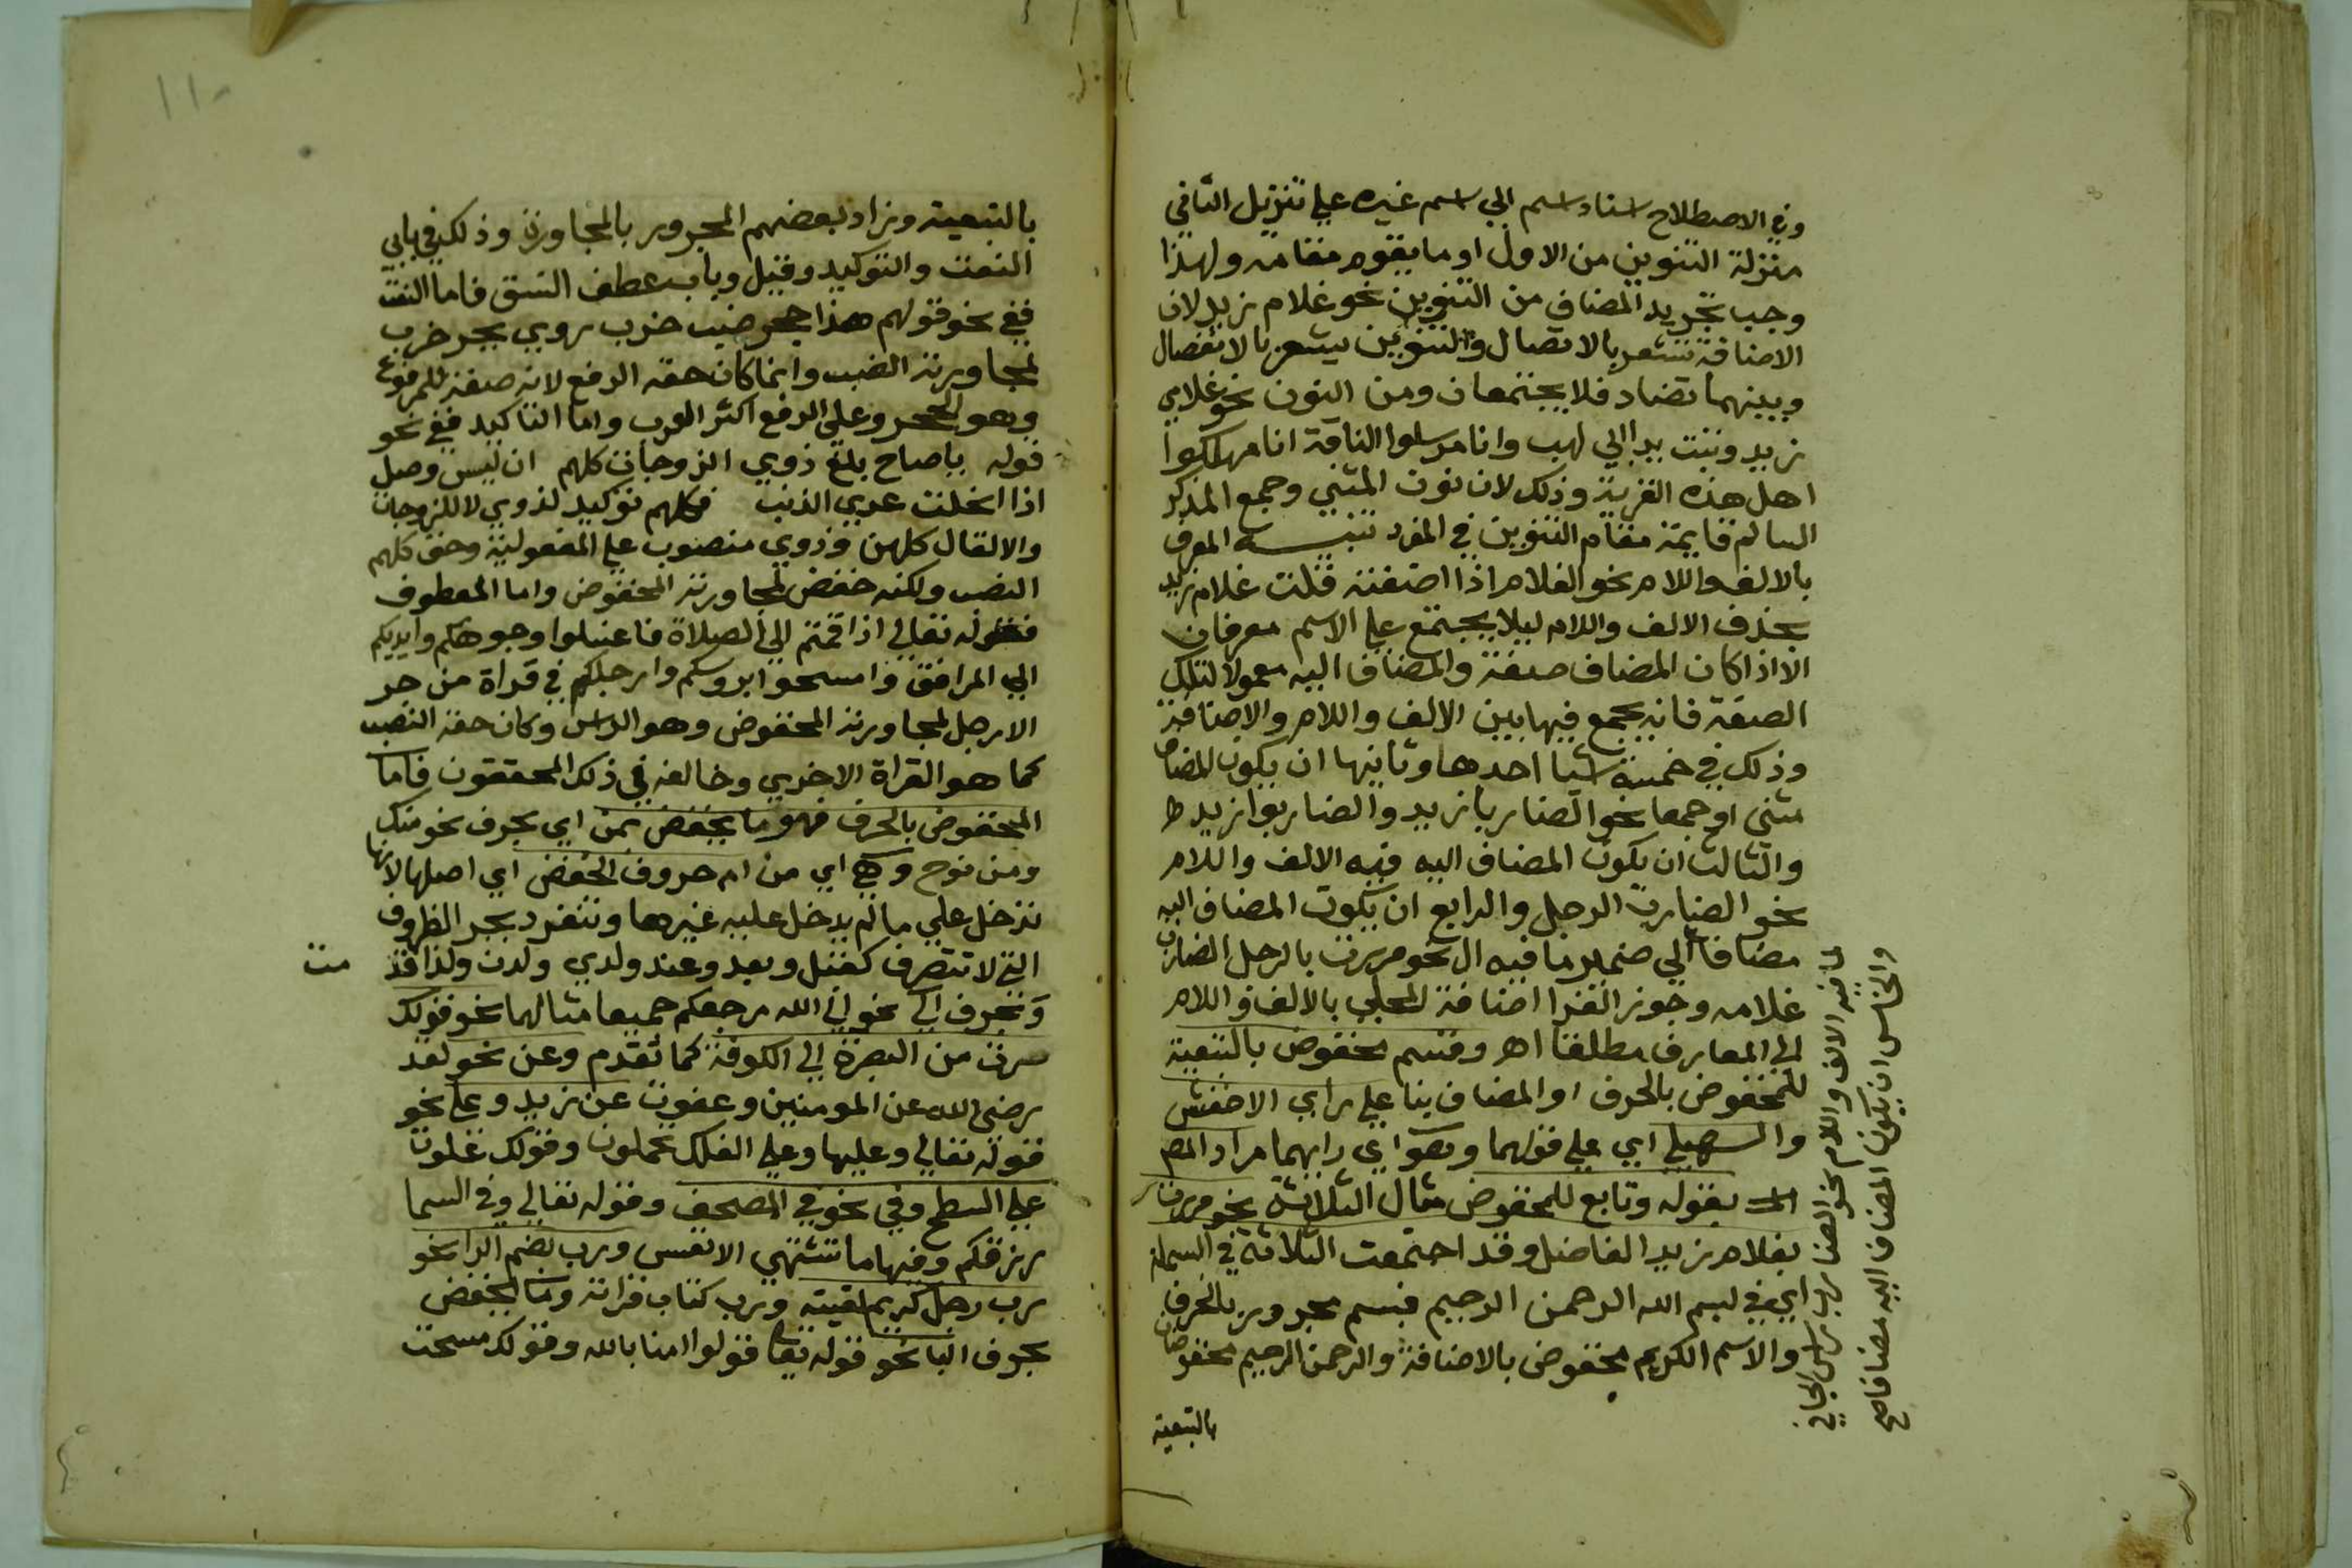 وفي الاصطلاح اسناد اسم الي اسم غيره علي تنزيل الثاني
منزلة التنوين من الاول او ما يقوم مقامه ولهذا
وجب تجريد المضاف من التنوين نحو غلام زيد لان
الاضافة تشعر بالاتصال والتنوين يشعر بالانفصال
وبينهما تضاد فلا يجتمعان ومن النون نحو غلامي
زيد وتبت يدا ابي لهب وانا مرسلوا الناقة انا مهلكوا
اهل هذه القرية وذلك لان نون المثني وجمع المذكر
السالم قايمة مقام التنوين في المفرد تنبيه المعرف
بالالف واللام نحو الغلام اذا اضفته قلت غلام زيد
بحذف الالف واللام ليلا يجتمع علي الاسم معرفان
الا اذا كان المضاف صفة والمضاف اليه معمولا لتلك
الصفة فانه يجمع فيها بين الالف واللام والاضافة
وذلك في خمسة اشيا احدها وثانيها ان يكون المضاف
مثني او جمعا نحو الضاربا زيد والضاربوا زيد
والثالث ان يكون المضاف اليه فيه الالف واللام
نحو الضارب الرجل والرابع ان يكون المضاف اليه
مضافا الي ضمير ما فيه ال نحو مررت بالرجل الضارب
غلامه وجوز الفرا اضافة المحلي بالالف واللام
الي المعارف مطلقا اهـ وقسم مخفوض بالتبعية
للمخفوض بالحرف او المضاف بنا علي راي الاخفش
والسهيلي اي علي قولهما وهو اي رايهما مراد المص
بقوله وتابع للمخفوض مثال الثلاثة نحو مررت
بغلام زيد الفاضل وقد اجتمعت الثلاثة في البسملة
اي في بسم الله الرحمن الرحيم فبسم مجرور بالحرف
والاسم الكريم مخفوض بالاضافة والرحمن الرحيم مخفوضان
بالتبعية
والخامس ان يكون المضاف اليه مضافا
لما فيه الالف واللام نحو الضارب راس الجاني
١١٠
بالتبعية وزاد بعضهم المجرور بالمجاورة وذلك في بابي
النعت والتوكيد وقيل وباب عطف النسق فاما النعت
ففي نحو قولهم هذا جحر ضب خرب روي بجر خرب
لمجاورته الضب وانما كان حقه الرفع لانه صفة للمرفوع
وهو الجحر وعلي الرفع اكثر العرب واما التاكيد ففي نحو
قوله ياصاح بلغ ذوي الزوجات كلهم ان ليس وصل
اذا انحلت عري الذنب فكلهم توكيد لذوي لا للزوجات
والا لقال كلهن وذوي منصوب علي المفعولية وحق كلهم
النصب ولكنه خفض لمجاورته المخفوض واما المعطوف
فقوله تعالي اذا قمتم الي الصلاة فاغسلوا وجوهكم وايديكم
الي المرافق وامسحوا بروسكم وارجلكم في قراة من جر
الارجل لمجاورته المخفوض وهو الراس وكان حقه النصب
كما هو القراة الاخري وخالفه في ذلك المحققون فاما
المخفوض بالحرف فهو ما يخفض بمن اي بحرف نحو منك
ومن نوح وهي اي من ام حروف الخفض اي اصلها لانها
تدخل علي ما لم يدخل عليه غيرها وتنفرد بجر الظروف
التي لا تتصرف كقبل وبعد وعند ولدي ولدن
وبحرف الي نحو الي الله مرجعكم جميعا مثالهما نحو قولك
سرت من البصرة الي الكوفة كما تقدم وعن نحو لقد
رضي الله عن المومنين وعفوت عن زيد وعلي نحو
قوله تعالي وعليها وعلي الفلك تحملون وقولك علوت
علي السطح وفي نحو في المصحف وقوله تعالي وفي السما
رزقكم وفيها ما تشتهي الانفس ورب بضم الرا نحو
رب رجل كريم لقيته ورب كتاب قراته وما يخفض
بحرف البا نحو قوله تعا قولوا امنا بالله وقولك مسحت